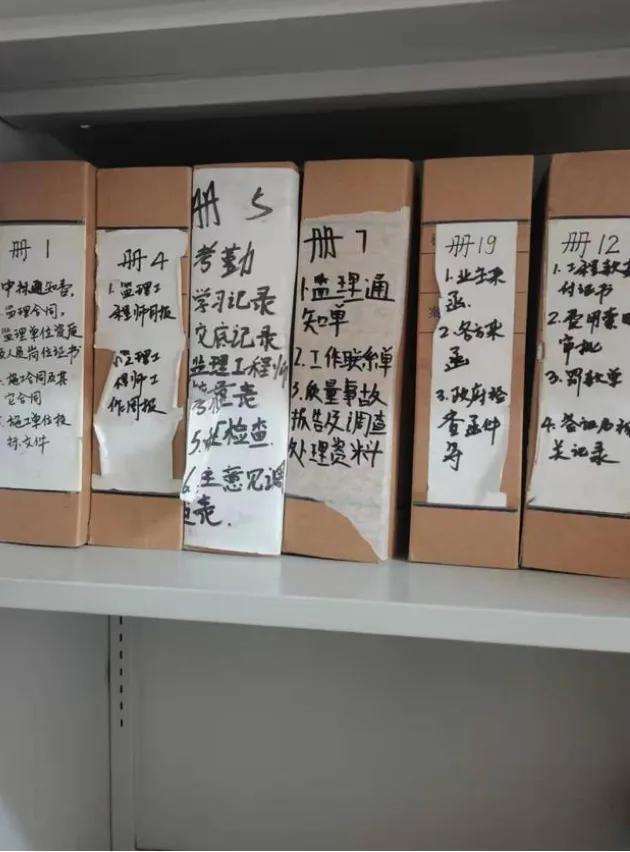 册1
中标通知书,
监理合同,
监理单位资质
及人员岗位证书
施工合同及其
它合同
施工单位投
标文件
册4
1.监理工
程师周报
监理工
程师工
作周报
册5
考勤
学习记录
交底记录
监理工程师
5. 检查.
6.
册7
1.监理通
知单
2.工作联系单
3.质量事故
报告及调查
处理资料
册19
1.业主来
函.
2.各方来
函
3.政府检
查函件
等
册12
1.工程款支
付证书
2.费用索赔
审批
3.罚款单
4.签证及相
关记录